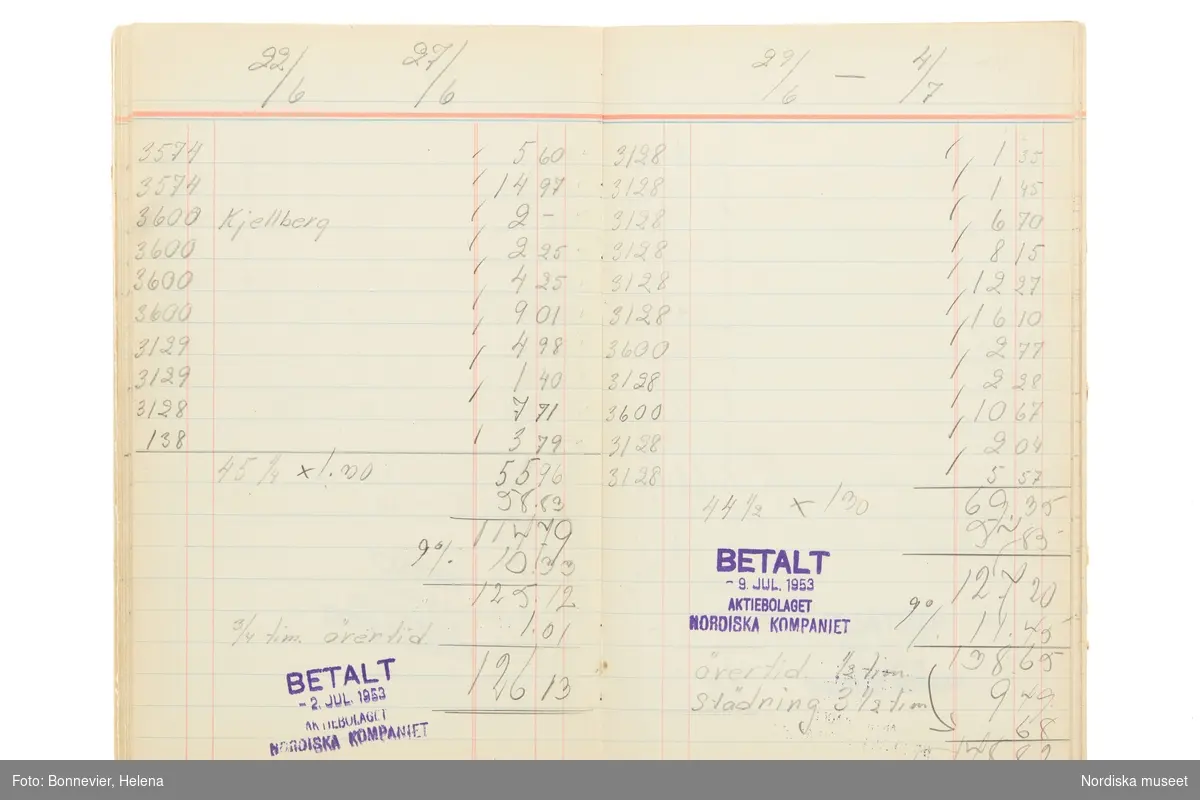 22/6 27/6
3574 5 60
3574 14 97
3600 Kjellberg 2 -
3600 2 25
3600 4 25
3600 9 01
3129 4 98
3129 1 40
3128 7 71
138 3 79
45 1/4 x 1.30 55 96
58.83
114 79
9% 10.33
125 12
3/4 tim. övertid 1.01
126 13
BETALT
- 2. JUL. 1953
AKTIEBOLAGET
NORDISKA KOMPANIET
29/6 — 4/7
3128 1 35
3128 1 45
3128 6 70
3128 8 15
3128 12 27
3128 16 10
3600 2 77
3128 2 28
3600 10 67
3128 2 04
3128 5 57
44 1/2 x 130 69.35
57 85
127 20
9% 11.45
138.65
övertid 1/2 tim.
städning 3 1/2 tim
68
BETALT
- 9. JUL. 1953
AKTIEBOLAGET
NORDISKA KOMPANIET
Foto: Bonnevier, Helena
Nordiska museet